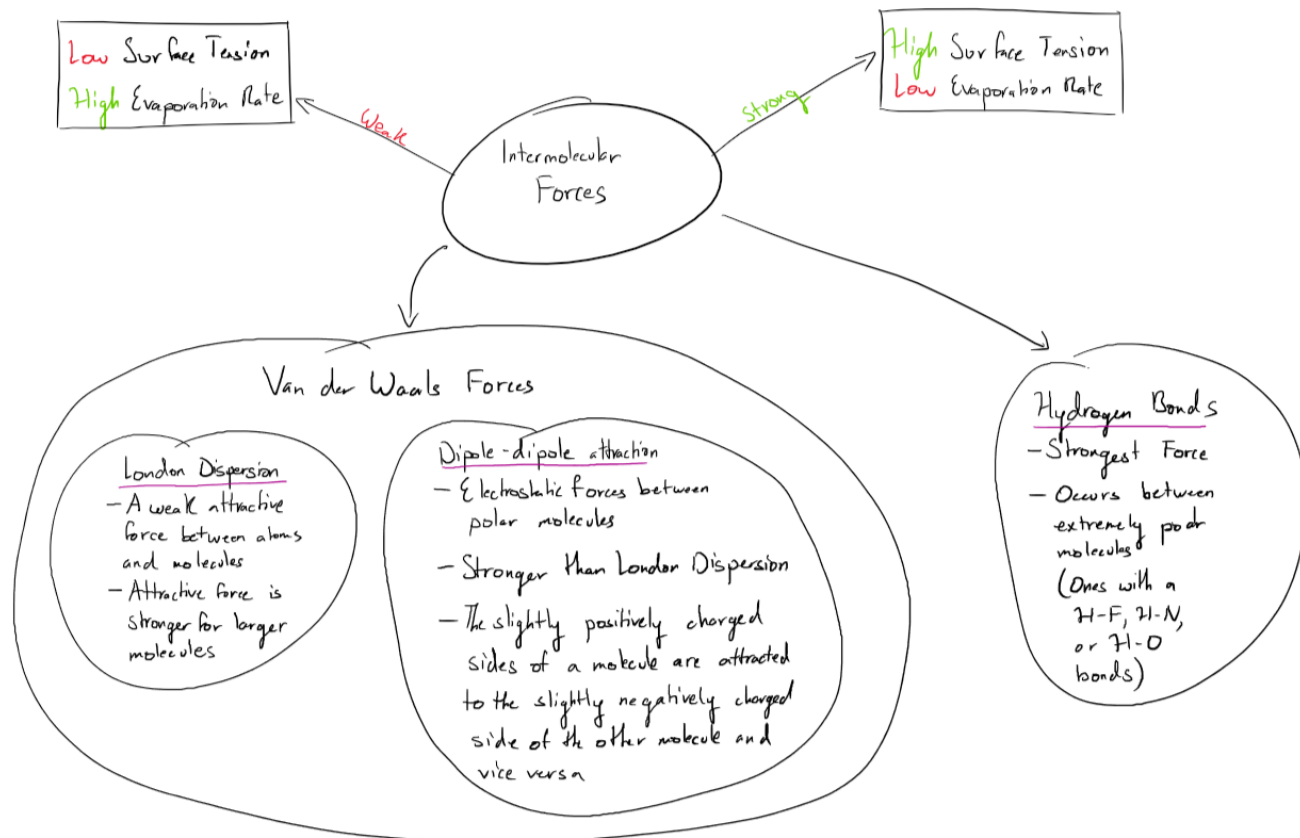 Low Surface Tension
High Evaporation Rate
Weak
High Surface Tension
Low Evaporation Rate
Strong
Intermolecular
Forces
Van der Waals Forces
London Dispersion
- A weak attractive
force between atoms
and molecules
- Attractive force is
stronger for larger
molecules
Dipole-dipole attraction
- Electrostatic forces between
polar molecules
- Stronger than London Dispersion
- The slightly positively charged
sides of a molecule are attracted
to the slightly negatively charged
side of the other molecule and
vice versa
Hydrogen Bonds
- Strongest Force
- Occurs between
extremely polar
molecules
(Ones with a
H-F, H-N,
or H-O
bonds)